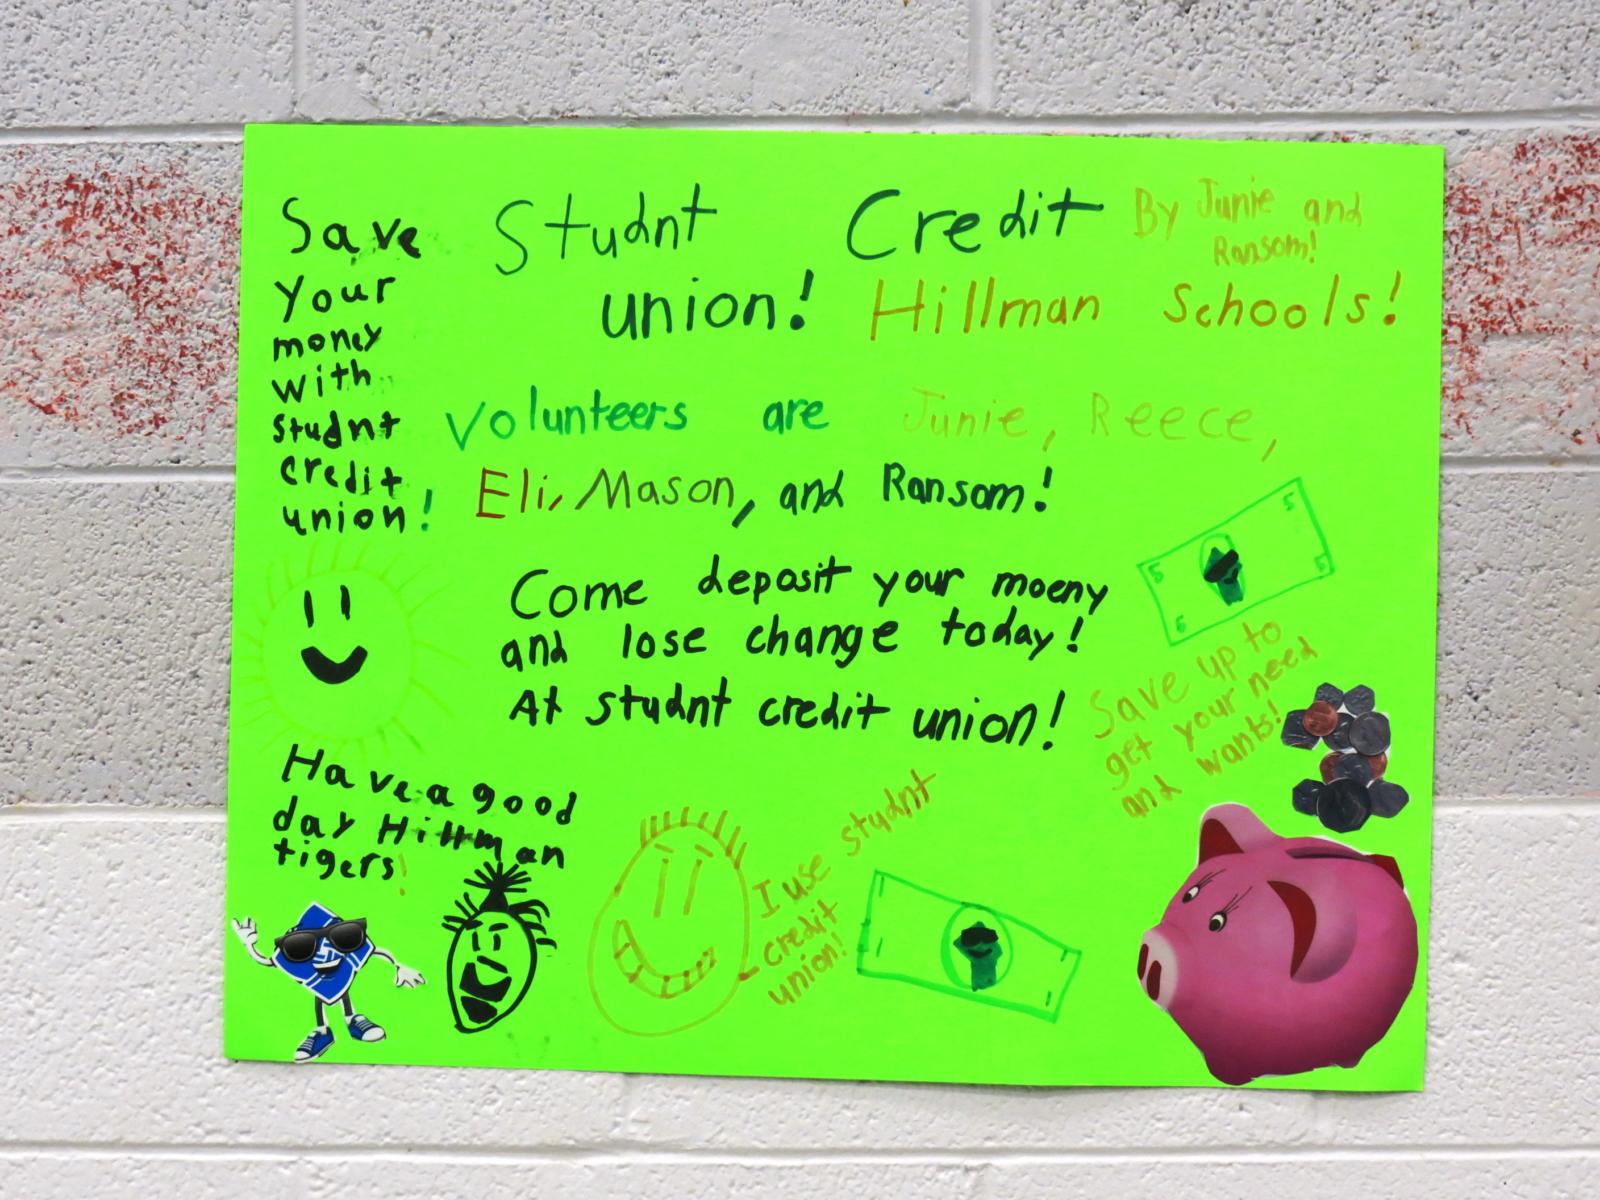 Save
Your
money
with
studnt
credit
union!
Studnt Credit
union!
By Junie and
Ransom!
Hillman Schools!
Volunteers are Junie, Reece,
Eli, Mason, and Ransom!
Come deposit your moeny
and lose change today!
At studnt credit union!
5 5
5 5
Save up to
get your need
and wants!
Have a good
day Hillman
tigers!
I use studnt
credit
union!